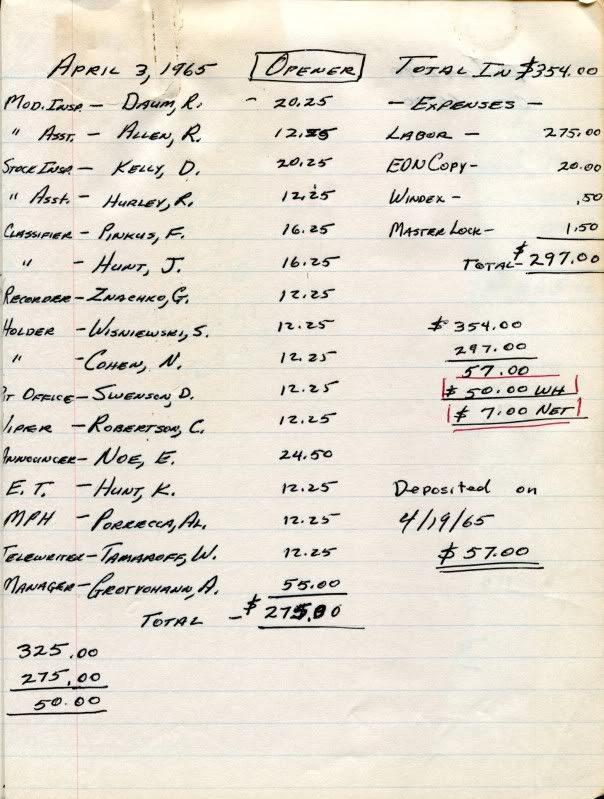 APRIL 3, 1965 OPENER TOTAL IN $354.00
MOD. INSP. - DAUM, R. - 20.25 - EXPENSES -
" ASST. - ALLEN, R. 12.25 LABOR - 275.00
STOCK INSP. - KELLY, D. 20.25 EON COPY - 20.00
" ASST. - HURLEY, R. 12.25 WINDEX - .50
CLASSIFIER - PINKUS, F. 16.25 MASTER LOCK - 1.50
" - HUNT, J. 16.25 TOTAL - $297.00
RECORDER - ZNACHKO, G. 12.25
HOLDER - WISNIEWSKI, S. 12.25 $354.00
" - COHEN, N. 12.25 297.00
57.00
PIT OFFICE - SWENSON, D. 12.25 $50.00 WH
WIPER - ROBERTSON, C. 12.25 $7.00 NET
ANNOUNCER - NOE, E. 24.50
E.T. - HUNT, K. 12.25 Deposited on
MPH - PORRECCA, AL. 12.25 4/19/65
TELEWRITER - TAMAROFF, W. 12.25 $57.00
MANAGER - GROTVOHANN, A. 55.00
TOTAL - $275.00
325.00
275.00
50.00